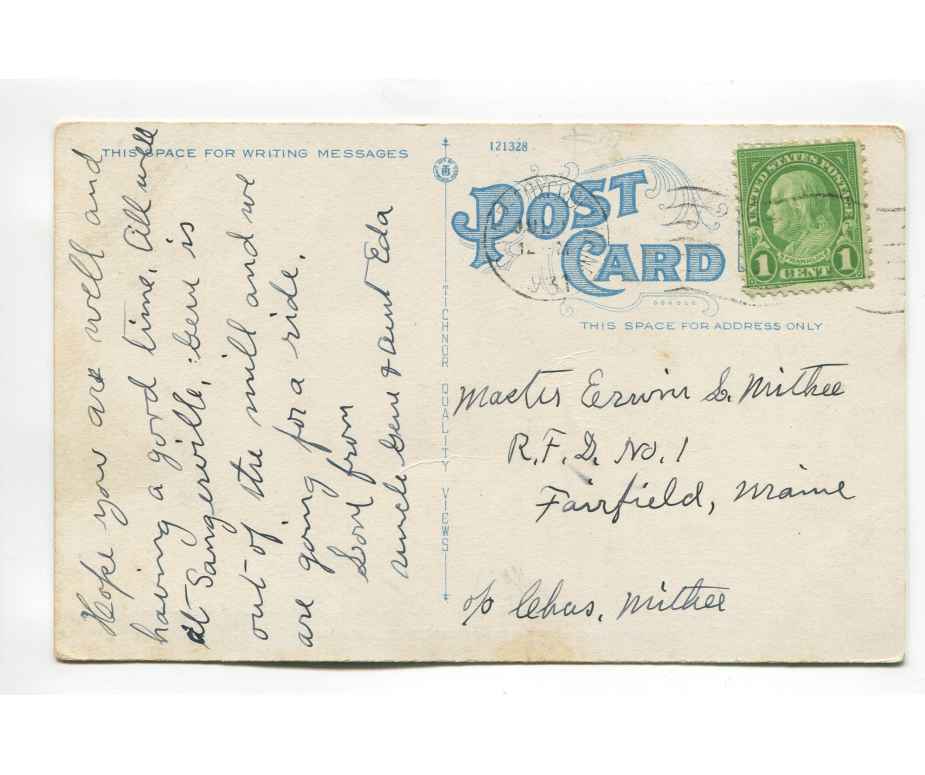 THIS SPACE FOR WRITING MESSAGES
Hope you are well and
having a good time. All well
at Sangerville, Gene is
out of the mill and we
are going for a ride.
Love from
uncle Gene & aunt Eda
TICHNOR QUALITY VIEWS
121328
POST
CARD
UNITED STATES POSTAGE
FRANKLIN
1 CENT 1
THIS SPACE FOR ADDRESS ONLY
Master Erwin L. Mithee
R.F.D. No. 1
Fairfield, Maine
c/o Chas. Mithee